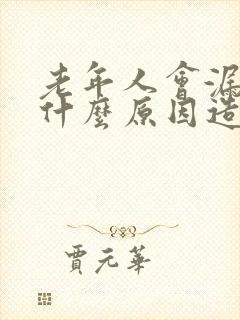 老年人會漏
什麼原因造
賈元華